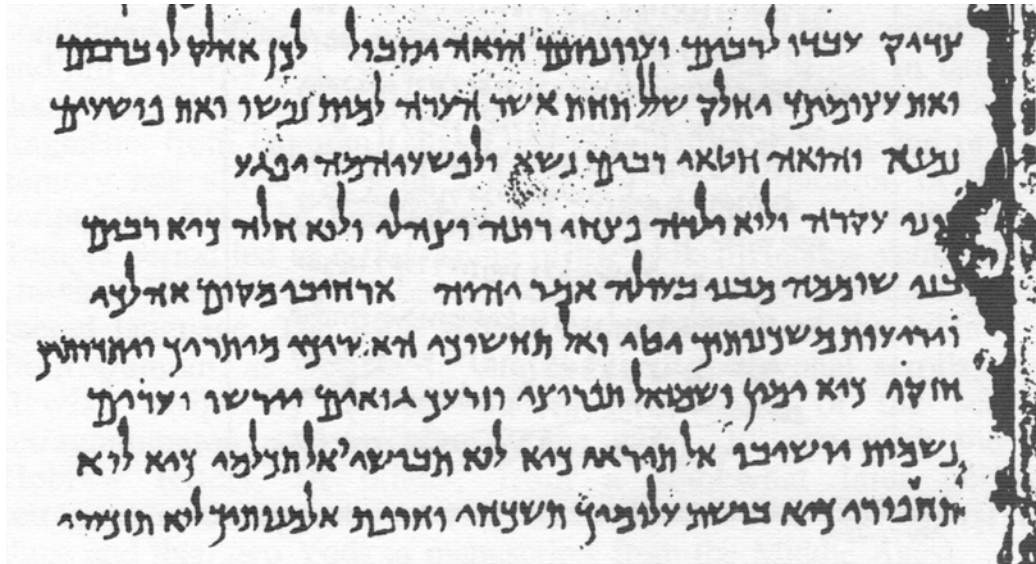 צדיק עבדו לרבים ועוונותם הואה יסבול לכן אחלק לו ברבים
ואת עצומים יחלק שלל תחת אשר הערה למות נפשו ואת פושעים
נמנא והואה חטאי רבים נשא ולפשעיהמה יפגע
רני עקרה ולוא ילדה פצחי רונה וצהלי ולוא חלה כיא רבים
בני שוממה מבני בעולה אמר יהוה ארחיבי מקום אהלכי
ויריעות משכנותיך יטי ואל תחשוכי האריכי מיתריך ויתדותיך
חזקי כיא ימין ושמאול תפרוצי וזרעך גואים יירש וערים
נשמות יושיבו אל תיראי כיא לוא תבושי ואל תכלמי כיא לוא
תחפירי כיא בושת עלומיך תשכחי וחרפת אלמנותיך לוא תזכורי